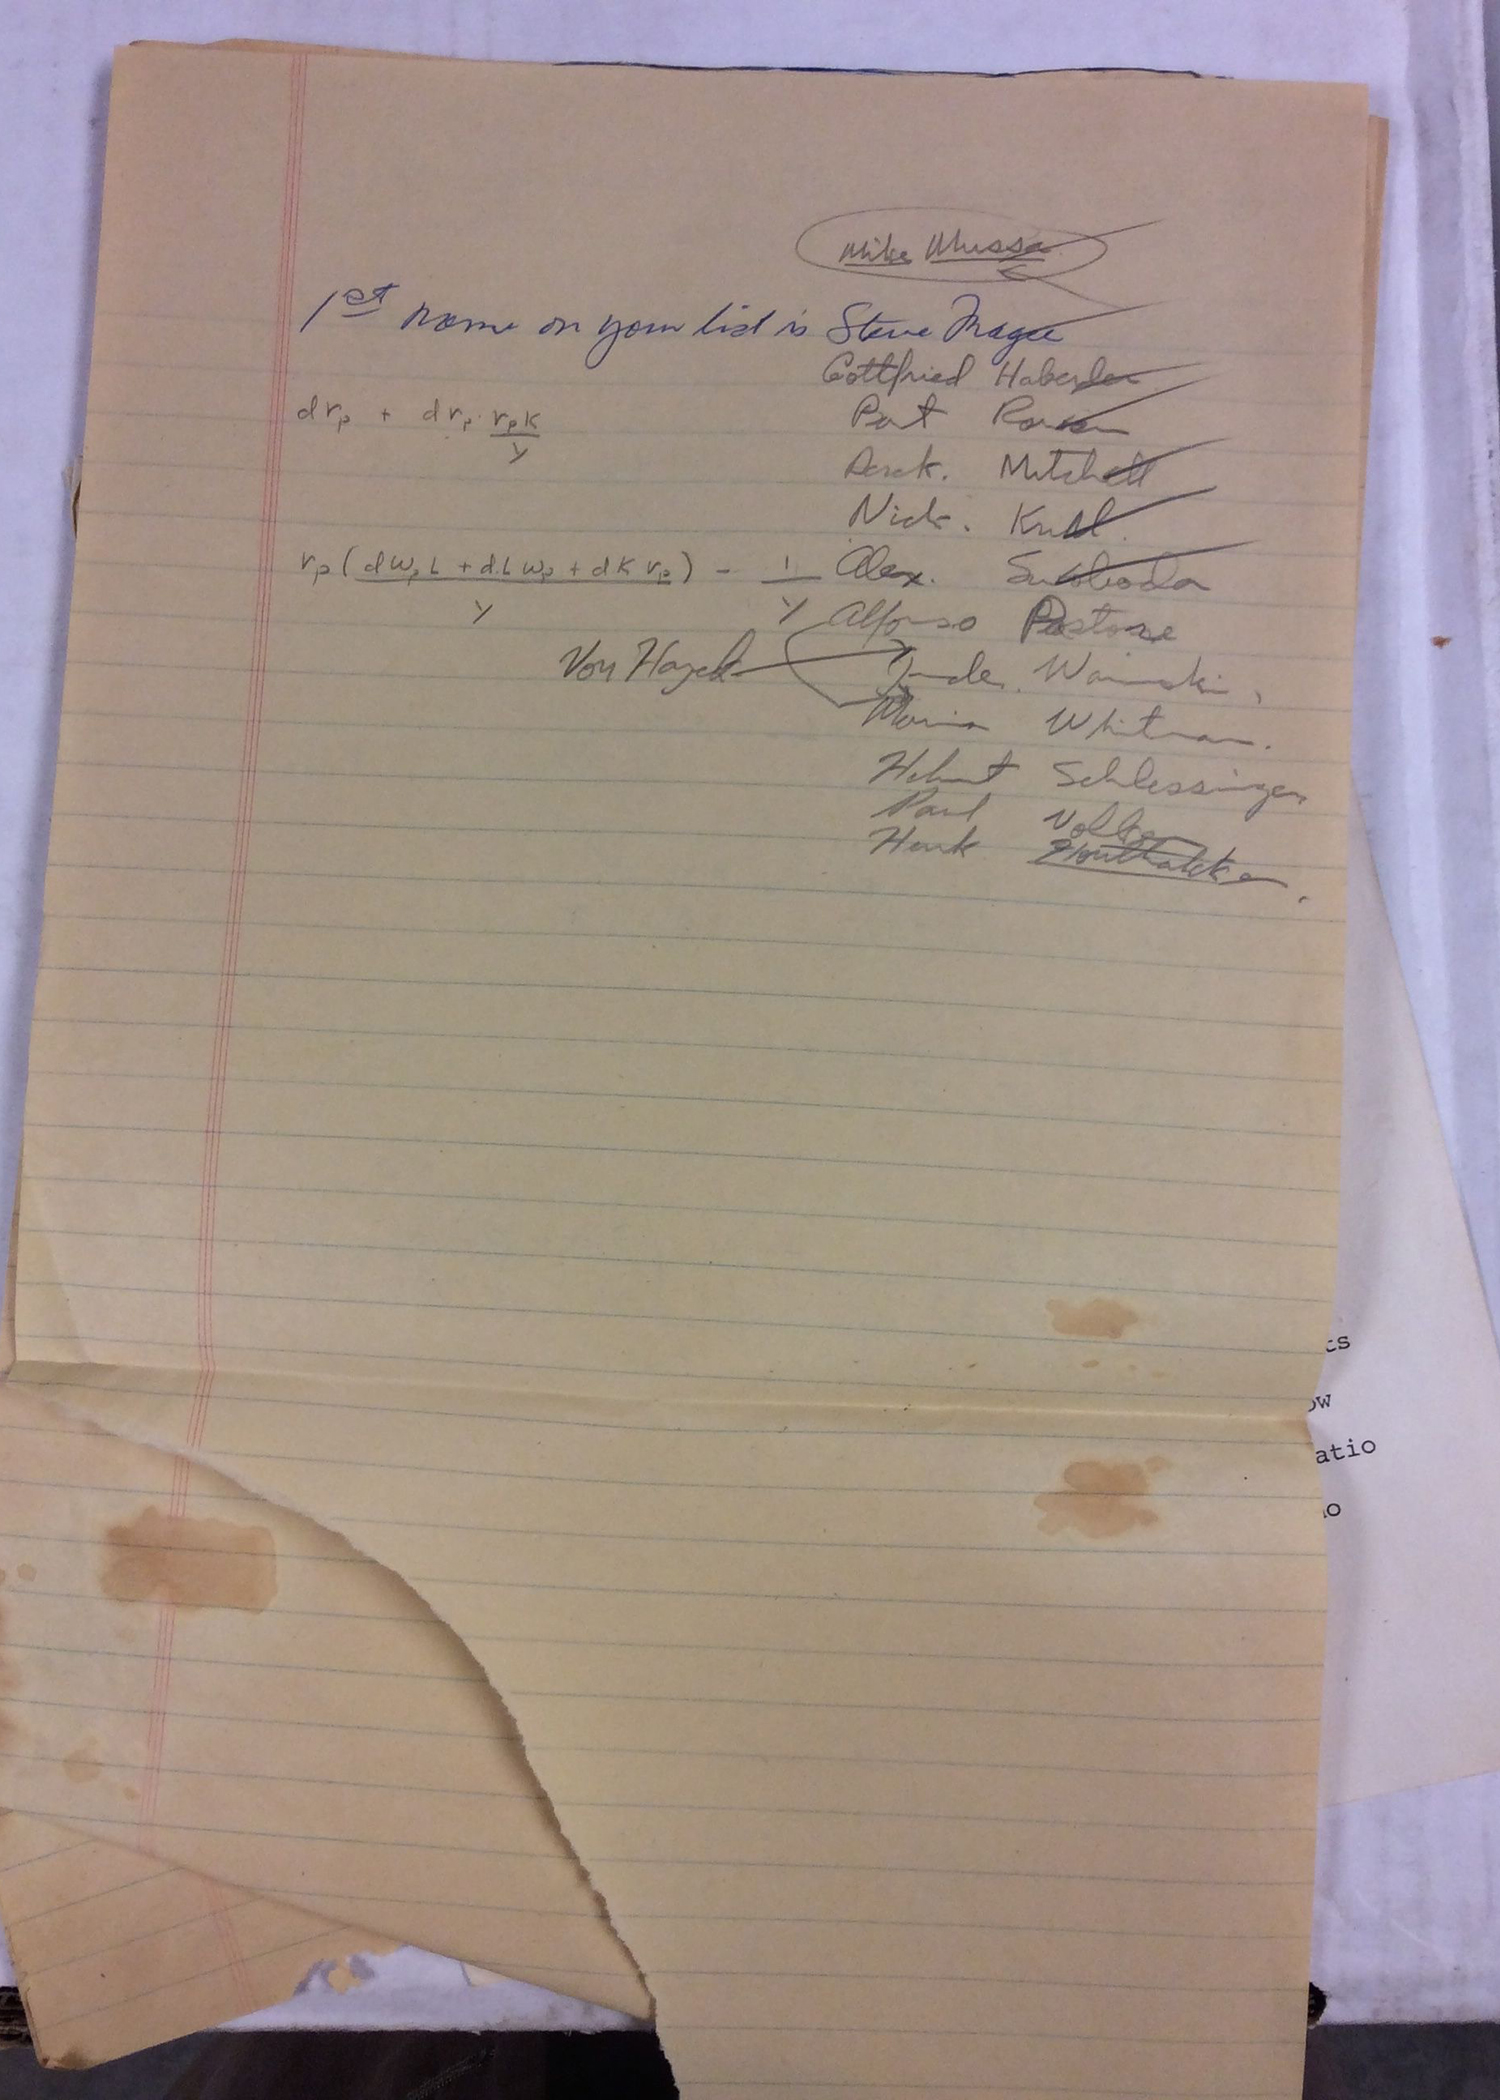 Mike Mussa
1st name on your list is Steve Magee
Gottfried Haberler
drp + drp . rpK
y
Mitchell
Nick. Krul.
rp (dwpL + dLwp + dK rp) - 1 Alex. Swoboda
y y Alfonso Pastore
Von Hayek Jude. Wanniski,
Marina Whitman.
Helmut Schlessinger
Paul Volker
Henk Houthakker.
ts
ow
atio